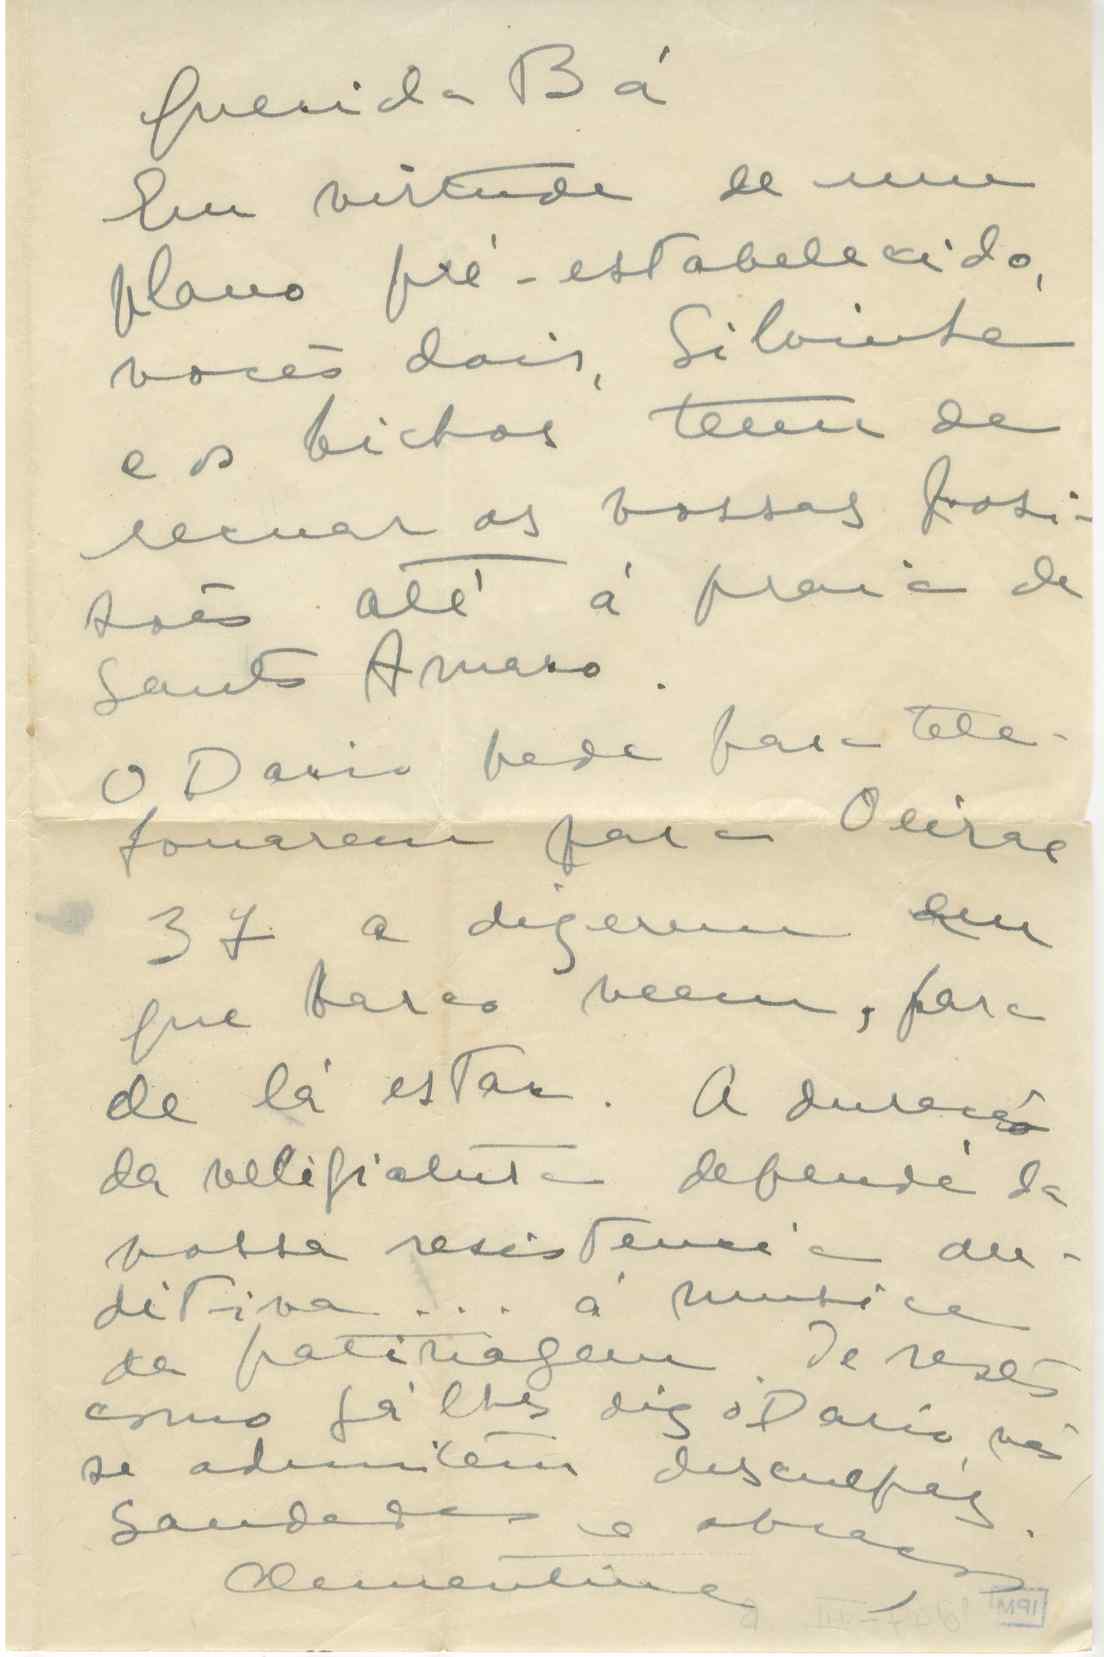 Querida Bá
Em virtude de um
plano pré-estabelecido,
vocês dois, Silvinha
e os bichos teem de
recuar as vossas posi-
sões até á praia de
Santo Amaro.
O Dario pede para tele-
fonarem para Oeiras
37 a dizerem em
que barco veem, para
de lá estar. A duração
da veligiatura depende da
vossa resistencia au-
ditiva.... á musica
da patinagem. De resto
como já lhes diz o Dario não
se admitem desculpas.
Saudades e abraços
Clementina
IPM